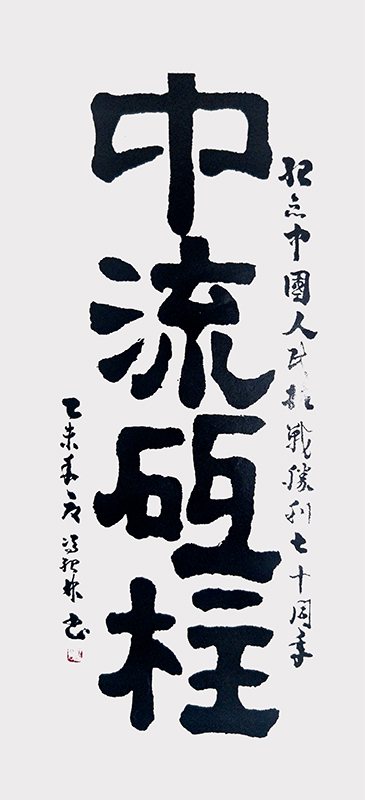 纪念中國人民抗戰勝利七十周年
中流砥柱
乙未 書